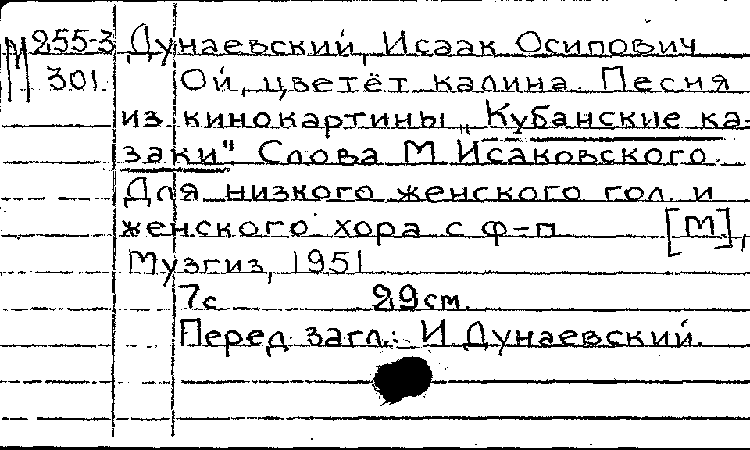 М 255-3 Дунаевский, Исаак Осипович
301. Ой, цветёт калина. Песня
из кинокартины „Кубанские ка-
заки". Слова М. Исаковского.
Для низкого женского гол. и
женского хора с ф-п [М.],
Музгиз, 1951
7с 29см.
Перед загл.: И. Дунаевский.